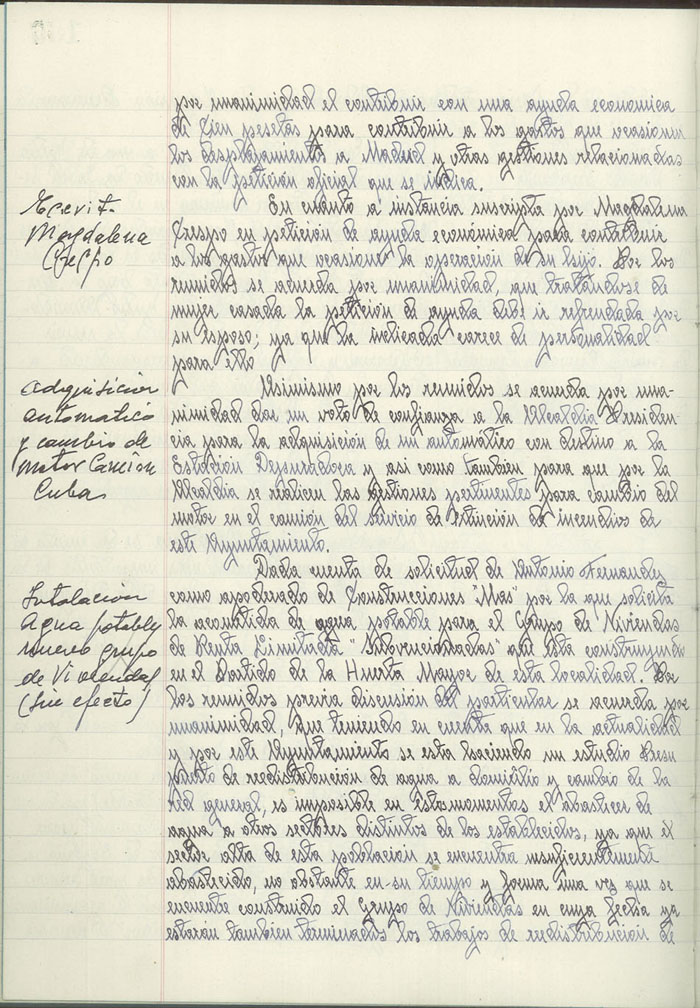 por unanimidad el contribuir con una ayuda economica
de Cien pesetas para contribuir a los gastos que ocasionen
los desplazamientos a Madrid y otras gestiones relacionadas
con la petición oficial que se indica.
Escrit.
Magdalena
Crespo
En cuanto a instancia suscripta por Magdalena
Crespo en petición de ayuda económica para contribuir
a los gastos que ocasione la operación de su hijo. Por los
reunidos se acuerda por unanimidad, que tratandose de
mujer casada la petición de ayuda debe ir refrendada por
su esposo; ya que la indicada carece de personalidad
para ello
Adquisición
automatico
y cambio de
motor Camion
Cuba
Asimismo por los reunidos se acuerda por una-
nimidad dar un voto de confianza a la Alcaldia Presiden-
cia para la adquisición de un automático con destino a la
Estación Depuradora y asi como tambien para que por la
Alcaldia se realicen las gestiones pertinentes para cambio del
motor en el camión del servicio de extinción de incendios de
este Ayuntamiento.
Intalacion
Agua potable
nuevo grupo
de Viviendas
(Sin efecto)
Dada cuenta de solicitud de Antonio Fernandez
como apoderado de Construcciones "Mas" por la que solicita
la acometida de agua potable para el Grupo de Viviendas
de Renta Limitada "Subvencionadas" que esta construyendo
en el Partido de la Huerta Mayor de esta localidad. Por
los reunidos previa discusión del particular se acuerda por
unanimidad, que teniendo en cuenta que en la actualidad
y por este Ayuntamiento se esta haciendo un estudio Presu
puesto de redistribución de agua a domicilio y cambio de la
red general, es imposible en estos momentos el abastecer de
agua a otros sectores distintos de los establecidos, ya que el
sector alta de esta población se encuentra insuficientemente
abastecido, no obstante en su tiempo y forma una vez que se
encuentre construido el Grupo de Viviendas en cuya fecha ya
estarán tambien terminados los trabajos de redistribución de